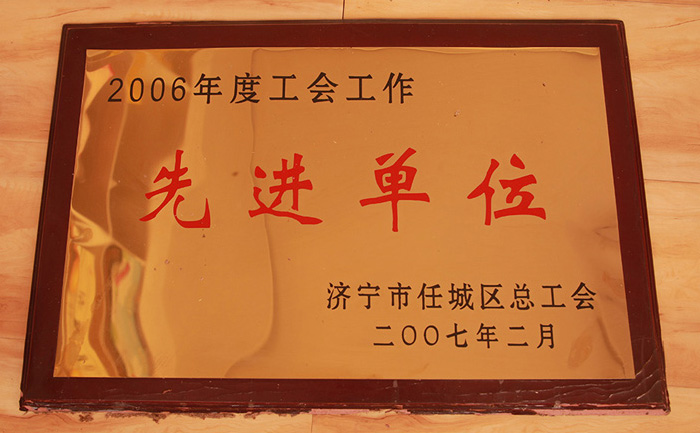 2006年度工会工作
先进单位
济宁市任城区总工会
二〇〇七年二月